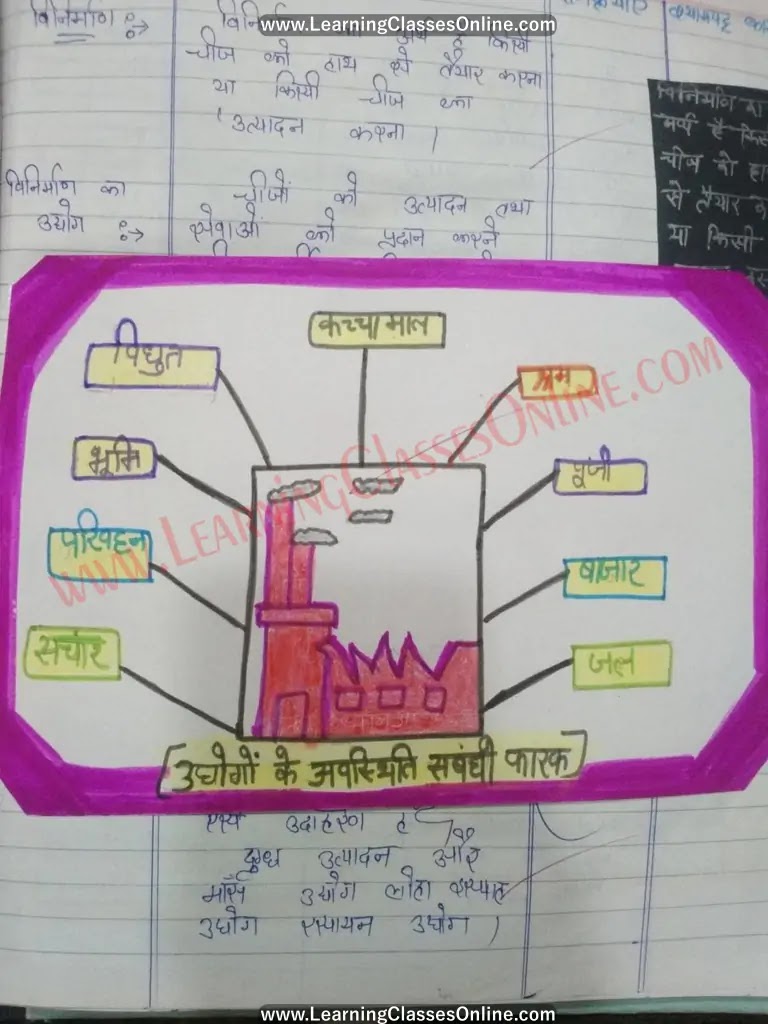 www.LearningClassesOnline.com
विनिर्माण
चीज को हाथ से तैयार करना
या किसी चीज का
उत्पादन करना ।
विनिर्माण का
उद्योग
चीजों को उत्पादन तथा
सेवाओं को प्रदान करने
विनिर्माण का
अर्थ है किसी
चीज को हा
से तैयार क
या किसी
कच्चा माल
विधुत
श्रम
भूमि
पूंजी
परिवहन
बाजार
सचार
जल
www.LearningClassesOnline.com
उधोगों के अवस्थिति सबंधी कारक
उदाहरण है
दुग्ध उत्पादन और
उद्योग लोहा इस्पात
उधोग रसायन उधोग ।
www.LearningClassesOnline.com